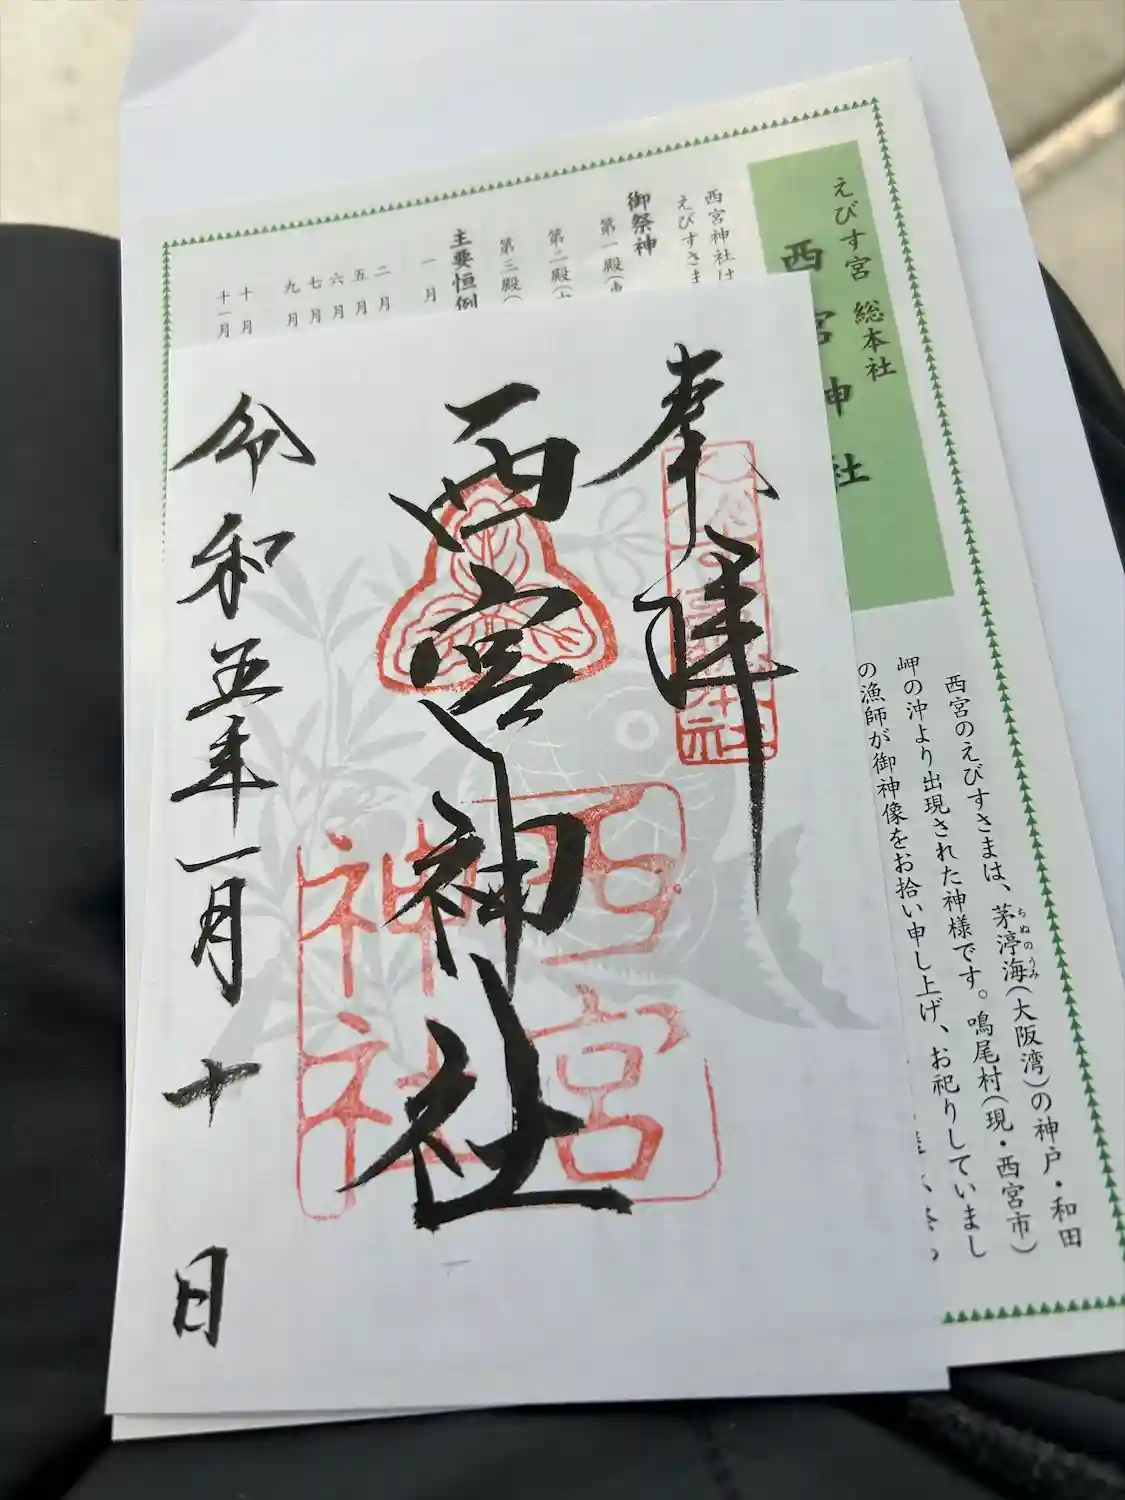 奉拝
西宮神社
令和五年一月十日
西宮
神社
えびす宮 総本社
西宮神社
西宮神社は
えびすさま
御祭神
第一殿(
第二殿(
第三殿(
主要恒例
一月
二月
五月
六月
七月
九月
十月
十一月
西宮のえびすさまは、茅渟海(大阪湾)の神戸・和田
ちぬのうみ
岬の沖より出現された神様です。鳴尾村(現・西宮市)
の漁師が御神像をお拾い申し上げ、お祀りしていまし